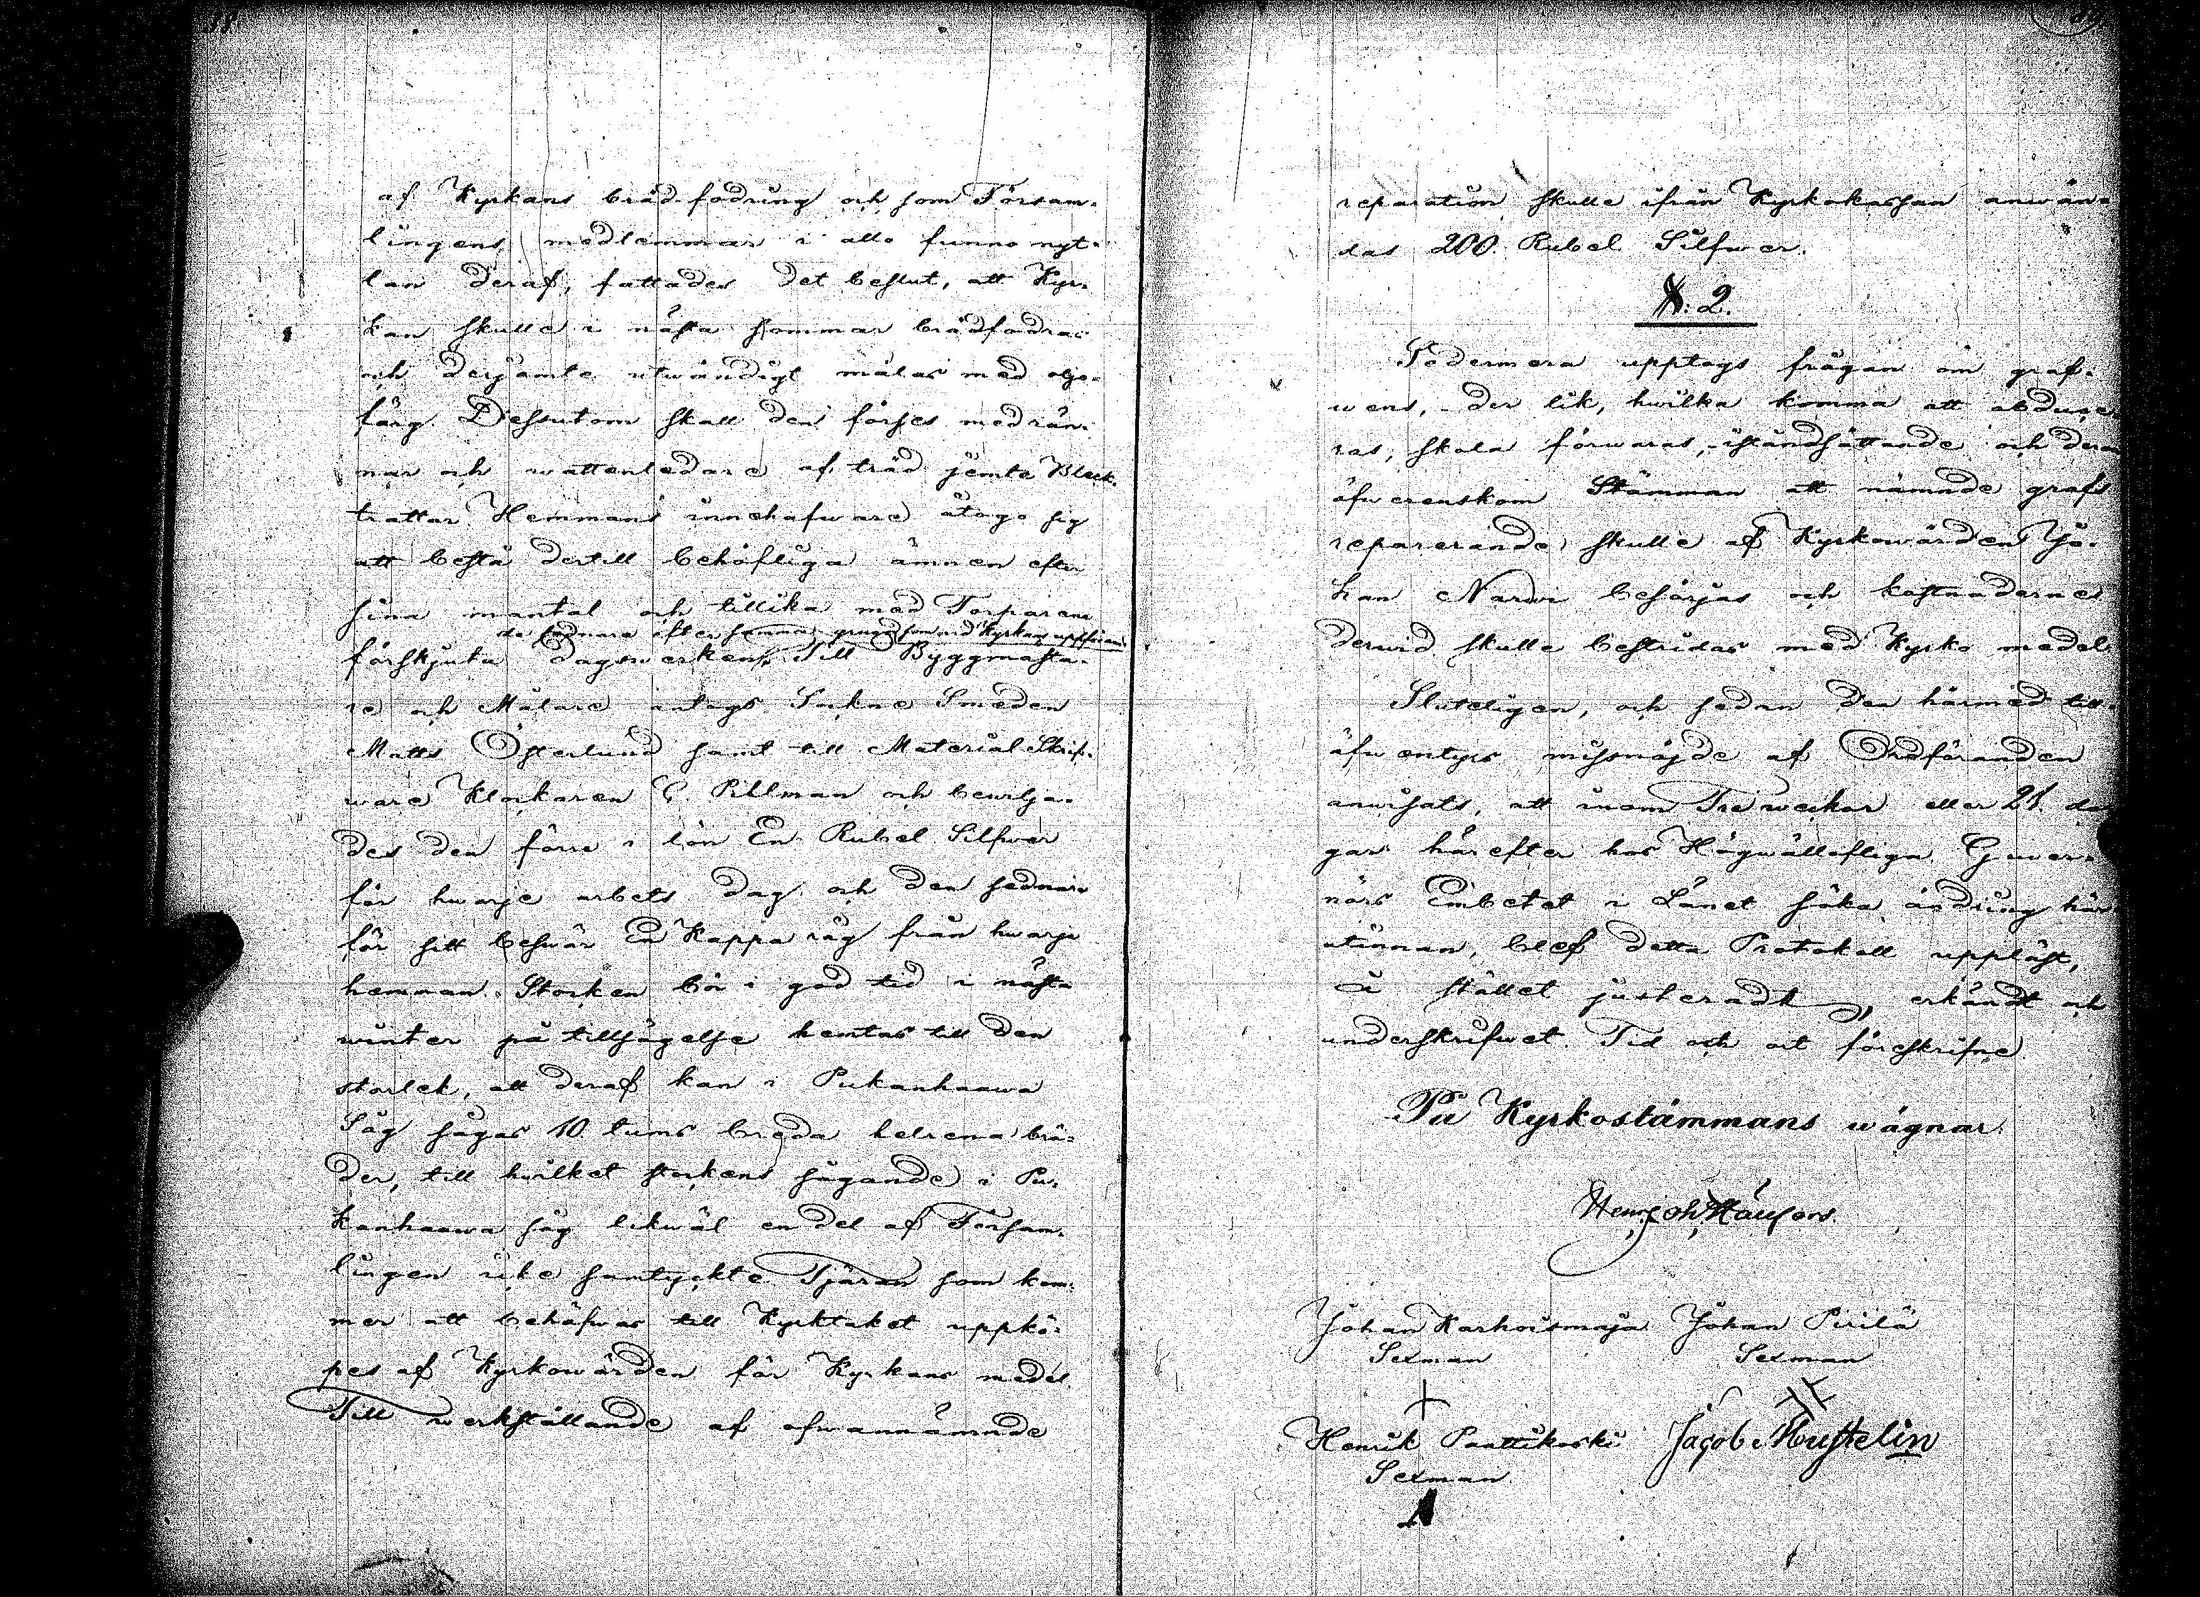 af Kyrkans brädfodring och som Försam-
lingens medlemmar i allo funno nyt-
tan deraf, fattades det beslut, att Kyr-
kan skulle i nästa sommar brädfodras
och derjämte utwändigt målas med olje-
färg. Dessutom skall den förses med rän-
nor och wattenledare af träd jemte Bleck-
trattar. Hemmans innehafware åtogo sig
att bestå dertill behöfliga ämnen efter
sina mantal och tillika med Torparena
de sednare efter samma grund som wid Kyrkans uppförande
förskjuta dagswerken. Till Byggmästa-
re och Målare antogs Sockne Smeden
Matts Österlund samt till Material Skrif-
ware Klockaren C. Pillman och bewilja-
des den förre i lön En Rubel Silfwer
för hwarje arbets dag och den sednare
för sitt beswär En Kappa råg från hwarje
hemman. Stocken bör i god tid i nästa
winter på tillsägelse hemtas till den
storlek, att deraf kan i Pukanhaawa
Såg sågas 10 tums breda helrena brä-
der, till hwilket stockens sågande i Pu-
kanhaawa såg likwäl en del af Försam-
lingen icke samtyckte. Tjäran som kom-
mer att behöfwas till Kyrktaket uppkö-
pes af Kyrkowärden för Kyrkans medel.
Till werkställande af ofwannämnde
reparation skulle ifrån Kyrkokassan anwän-
das 200 Rubel Silfwer.
§. 2.
Sedermera upptogs frågan om graf-
wens, der lik, hwilka komma att obduce-
ras, skola förwaras, iståndsättande och
öfwerenskom Stämman att nämnde grafs
reparerande skulle af Kyrkowärden Jo-
han Narwi besörjas och kostnaderne
derwid skulle bestridas med Kyrko medel
Sluteligen, och sedan den härmed till-
äfwentyrs missnöjde af Ordföranden
anwisats, att inom Tre weckor eller 21 da-
gar härefter hos Högwällofliga Guwer-
nörs Embetet i Länet söka ändring här-
utinnan, blef detta Protokoll uppläst,
å stället justeradt, erkändt och
underskrifwet. Tid och ort föreskrifne
På Kyrkostämmans wägnar.
Johan Karhoismaja Johan Pirilä
Sexman Sexman
Henrik Panttikoski Jacob Hustelin
Sexman